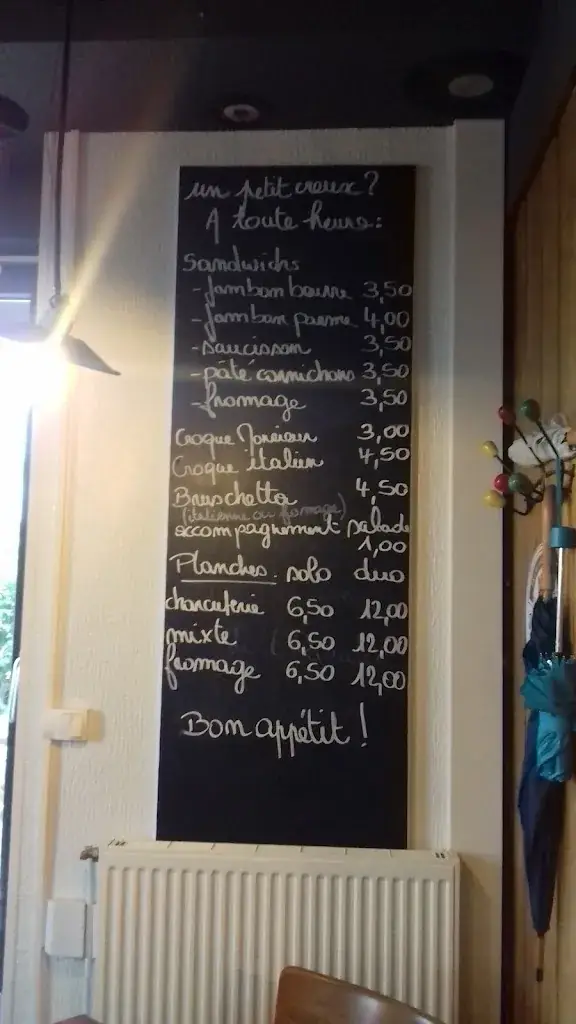 un petit creux ?
A toute heure :
Sandwichs
- Jambon beurre 3,50
- Jambon parme 4,00
- saucisson 3,50
- pâté cornichons 3,50
- fromage 3,50
Croque Monsieur 3,00
Croque italien 4,50
Bruschetta 4,50
(italienne ou fromage)
accompagnement salade
1,00
Planches. solo duo
charcuterie 6,50 12,00
mixte 6,50 12,00
fromage 6,50 12,00
Bon appétit !